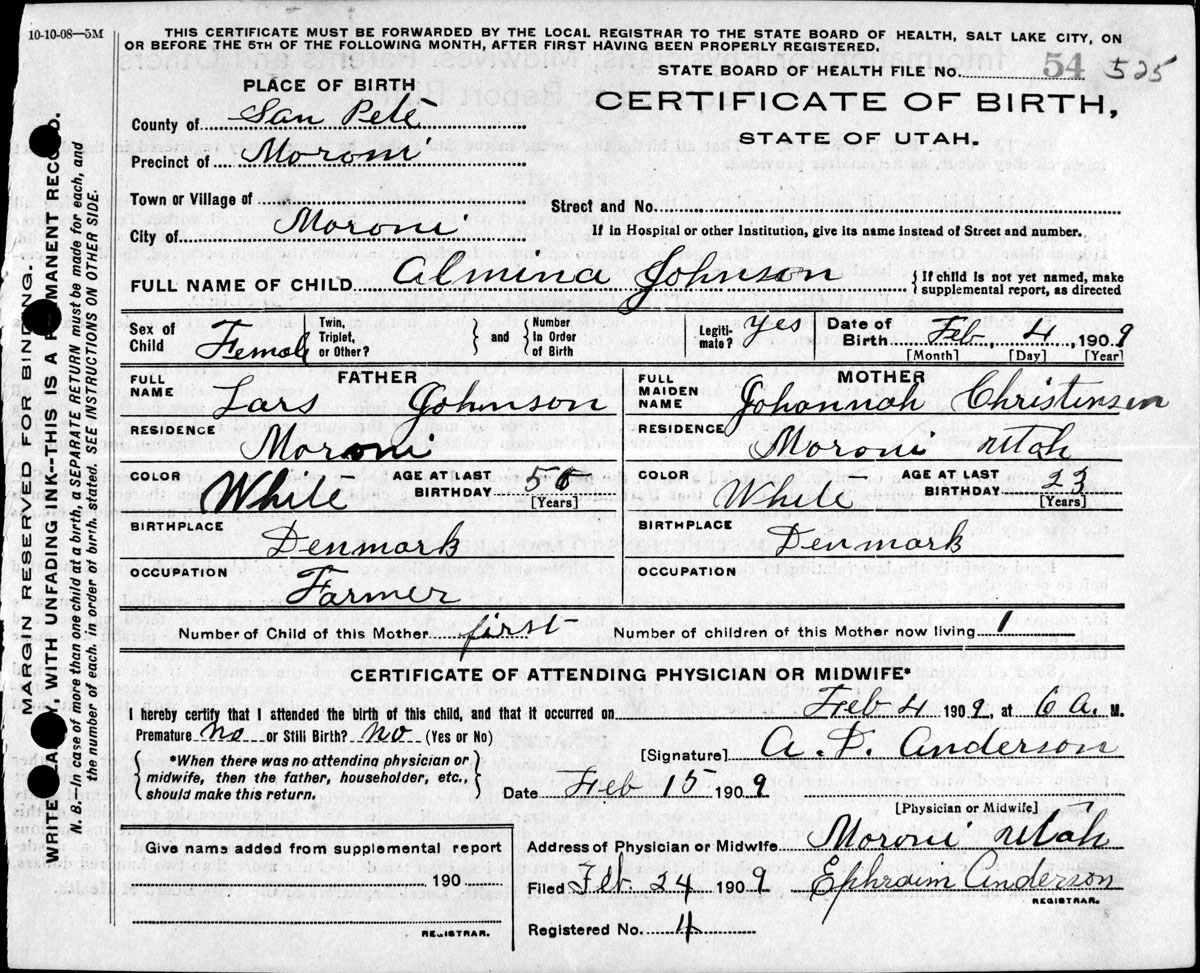 10-10-08—5M
THIS CERTIFICATE MUST BE FORWARDED BY THE LOCAL REGISTRAR TO THE STATE BOARD OF HEALTH, SALT LAKE CITY, ON
OR BEFORE THE 5TH OF THE FOLLOWING MONTH, AFTER FIRST HAVING BEEN PROPERLY REGISTERED.
STATE BOARD OF HEALTH FILE No. 54 525
PLACE OF BIRTH
CERTIFICATE OF BIRTH,
STATE OF UTAH.
County of San Pete
Precinct of Moroni
Town or Village of
Street and No.
City of Moroni
If in Hospital or other Institution, give its name instead of Street and number.
FULL NAME OF CHILD Almina Johnson { If child is not yet named, make
supplemental report, as directed
Sex of Child Female
Twin, Triplet, or Other? } and { Number In Order of Birth
Legiti-mate? Yes
Date of Birth Feb, 4, 1909
[Month] [Day] [Year]
FATHER
FULL NAME Lars Johnson
RESIDENCE Moroni
COLOR White AGE AT LAST BIRTHDAY [Years]
BIRTHPLACE Denmark
OCCUPATION Farmer
MOTHER
FULL MAIDEN NAME Johannah Christensen
RESIDENCE Moroni Utah
COLOR White AGE AT LAST BIRTHDAY 23 [Years]
BIRTHPLACE Denmark
OCCUPATION
Number of Child of this Mother first Number of children of this Mother now living 1
CERTIFICATE OF ATTENDING PHYSICIAN OR MIDWIFE*
I hereby certify that I attended the birth of this child, and that it occurred on Feb 4 1909, at 6 A. M.
Premature no or Still Birth? No (Yes or No)
[Signature] A. D. Anderson
{ *When there was no attending physician or
midwife, then the father, householder, etc.,
should make this return. }
Date Feb 15 1909
[Physician or Midwife]
Give name added from supplemental report
190
REGISTRAR.
Address of Physician or Midwife Moroni Utah
Filed Feb 24 1909 Ephraim Anderson
REGISTRAR.
Registered No. 4
MARGIN RESERVED FOR BINDING.
WRITE WITH UNFADING INK--THIS IS A RECORD.
N. B.—In case of more than one child at a birth, a SEPARATE RETURN must be made for each, and
the number of each. in order of birth. stated. SEE INSTRUCTIONS ON OTHER SIDE.